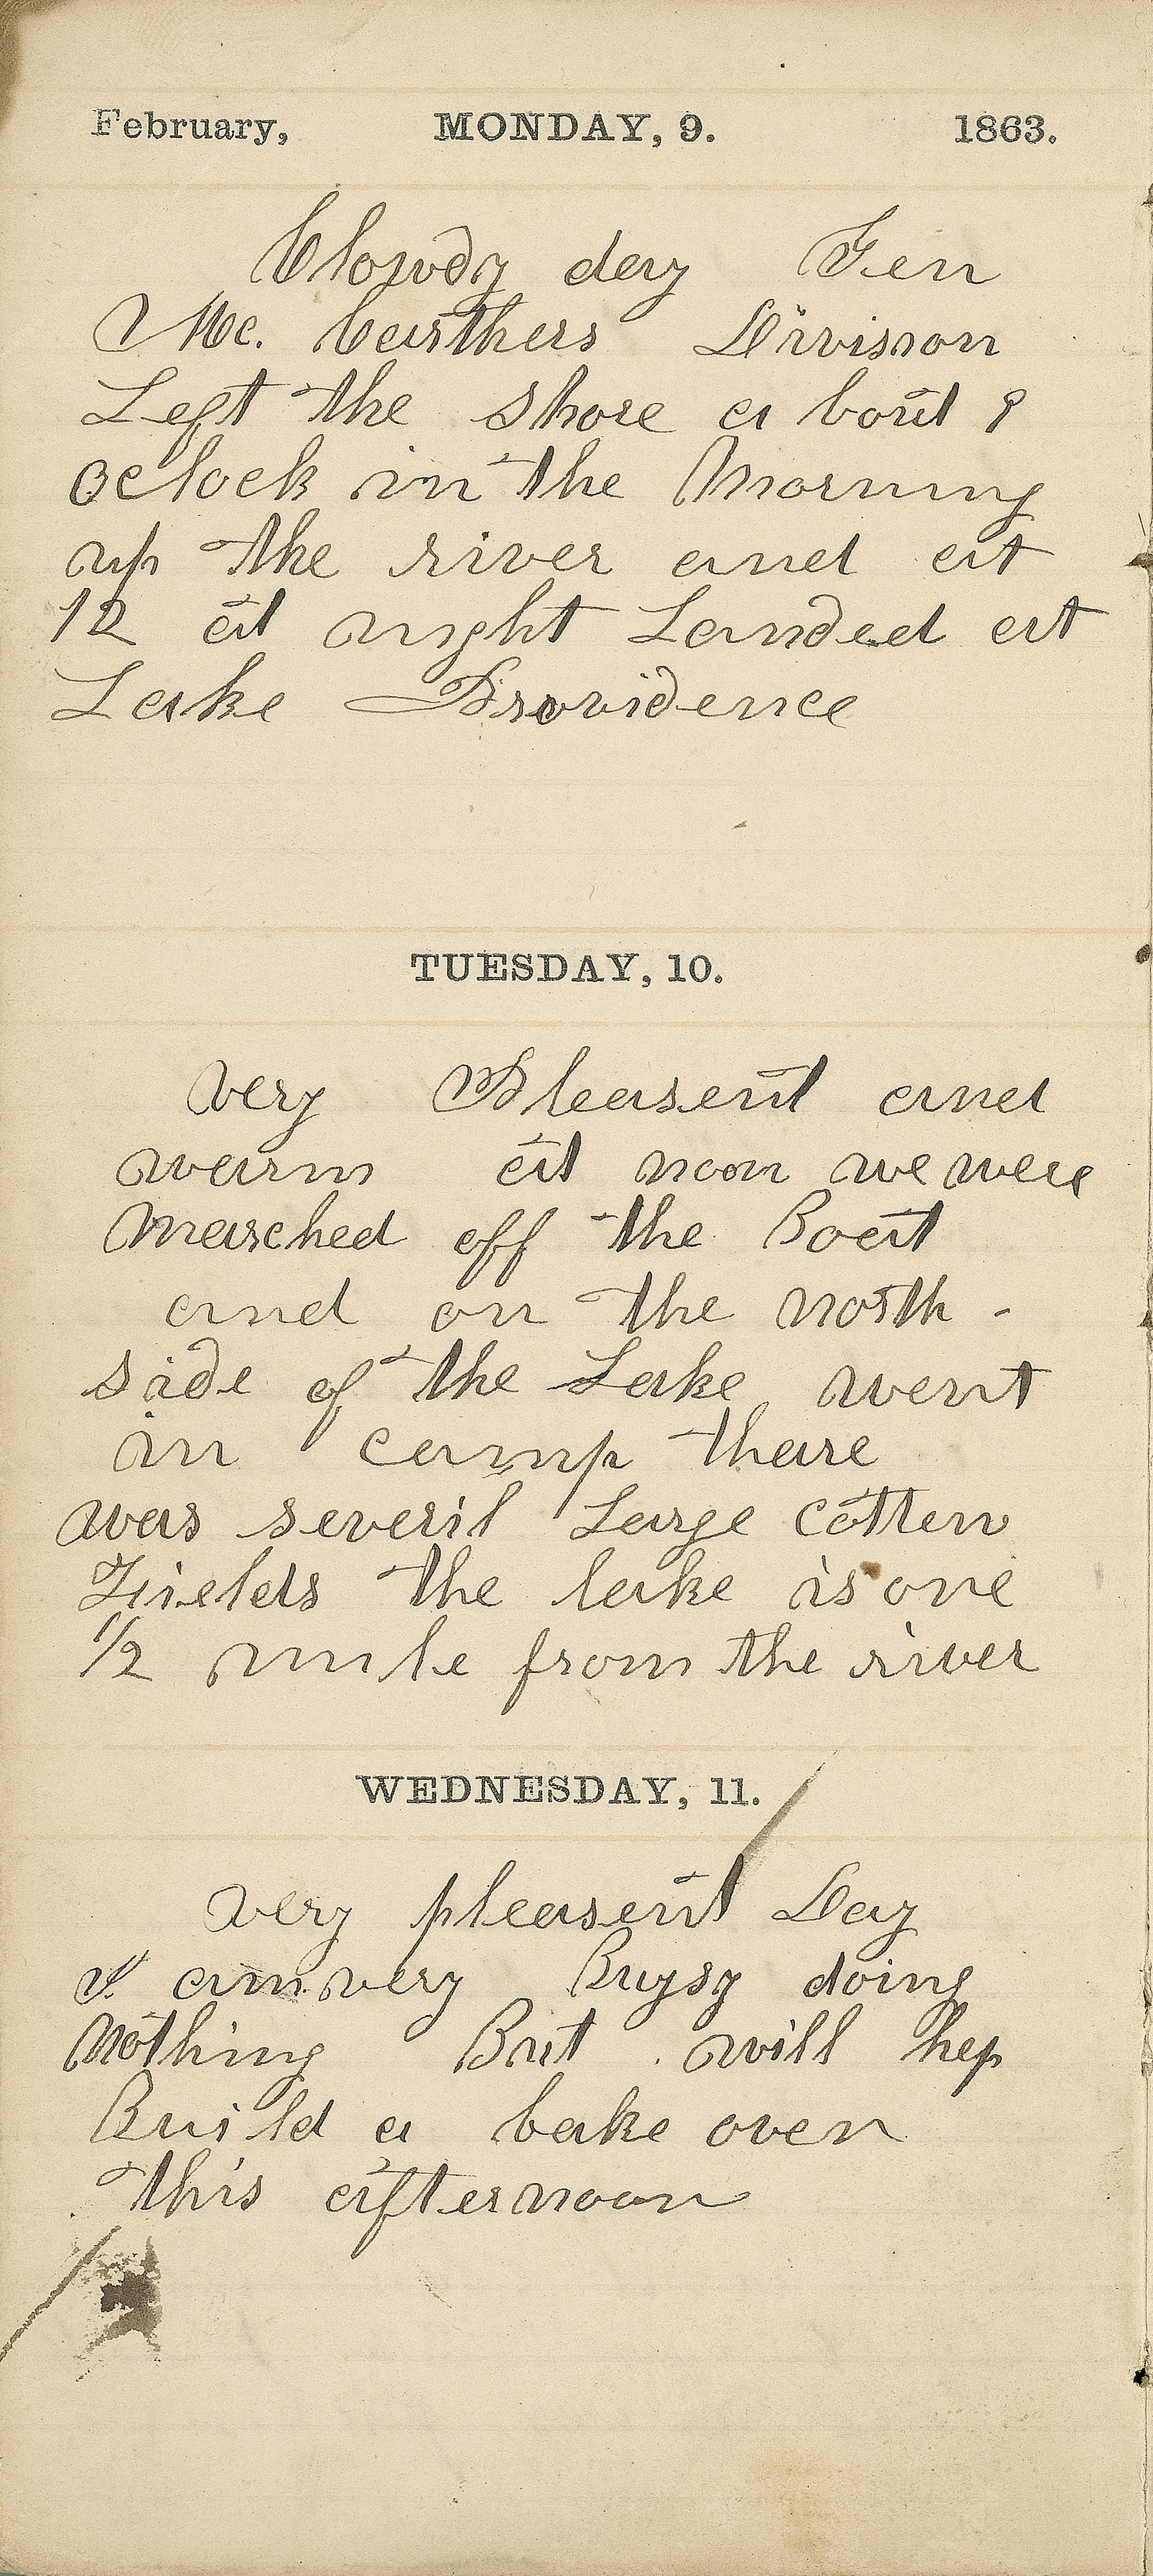 February, MONDAY, 9. 1863.
Clowdy day Gen
Mc. Carthers Divison
Left the shore a bout 9
oclock in the Morning
up the river and at
12 at night Landed at
Lake Providence
TUESDAY, 10.
very Pleasent and
warm at noon we were
Marched off the Boat
and on the north -
side of the Lake went
in camp thare
was severil Large cotten
Fields the lake is one
1/2 mile from the river
WEDNESDAY, 11.
very pleasent Day
I am very Buysy doing
Nothing But will hep
Build a bake oven
this afternoon